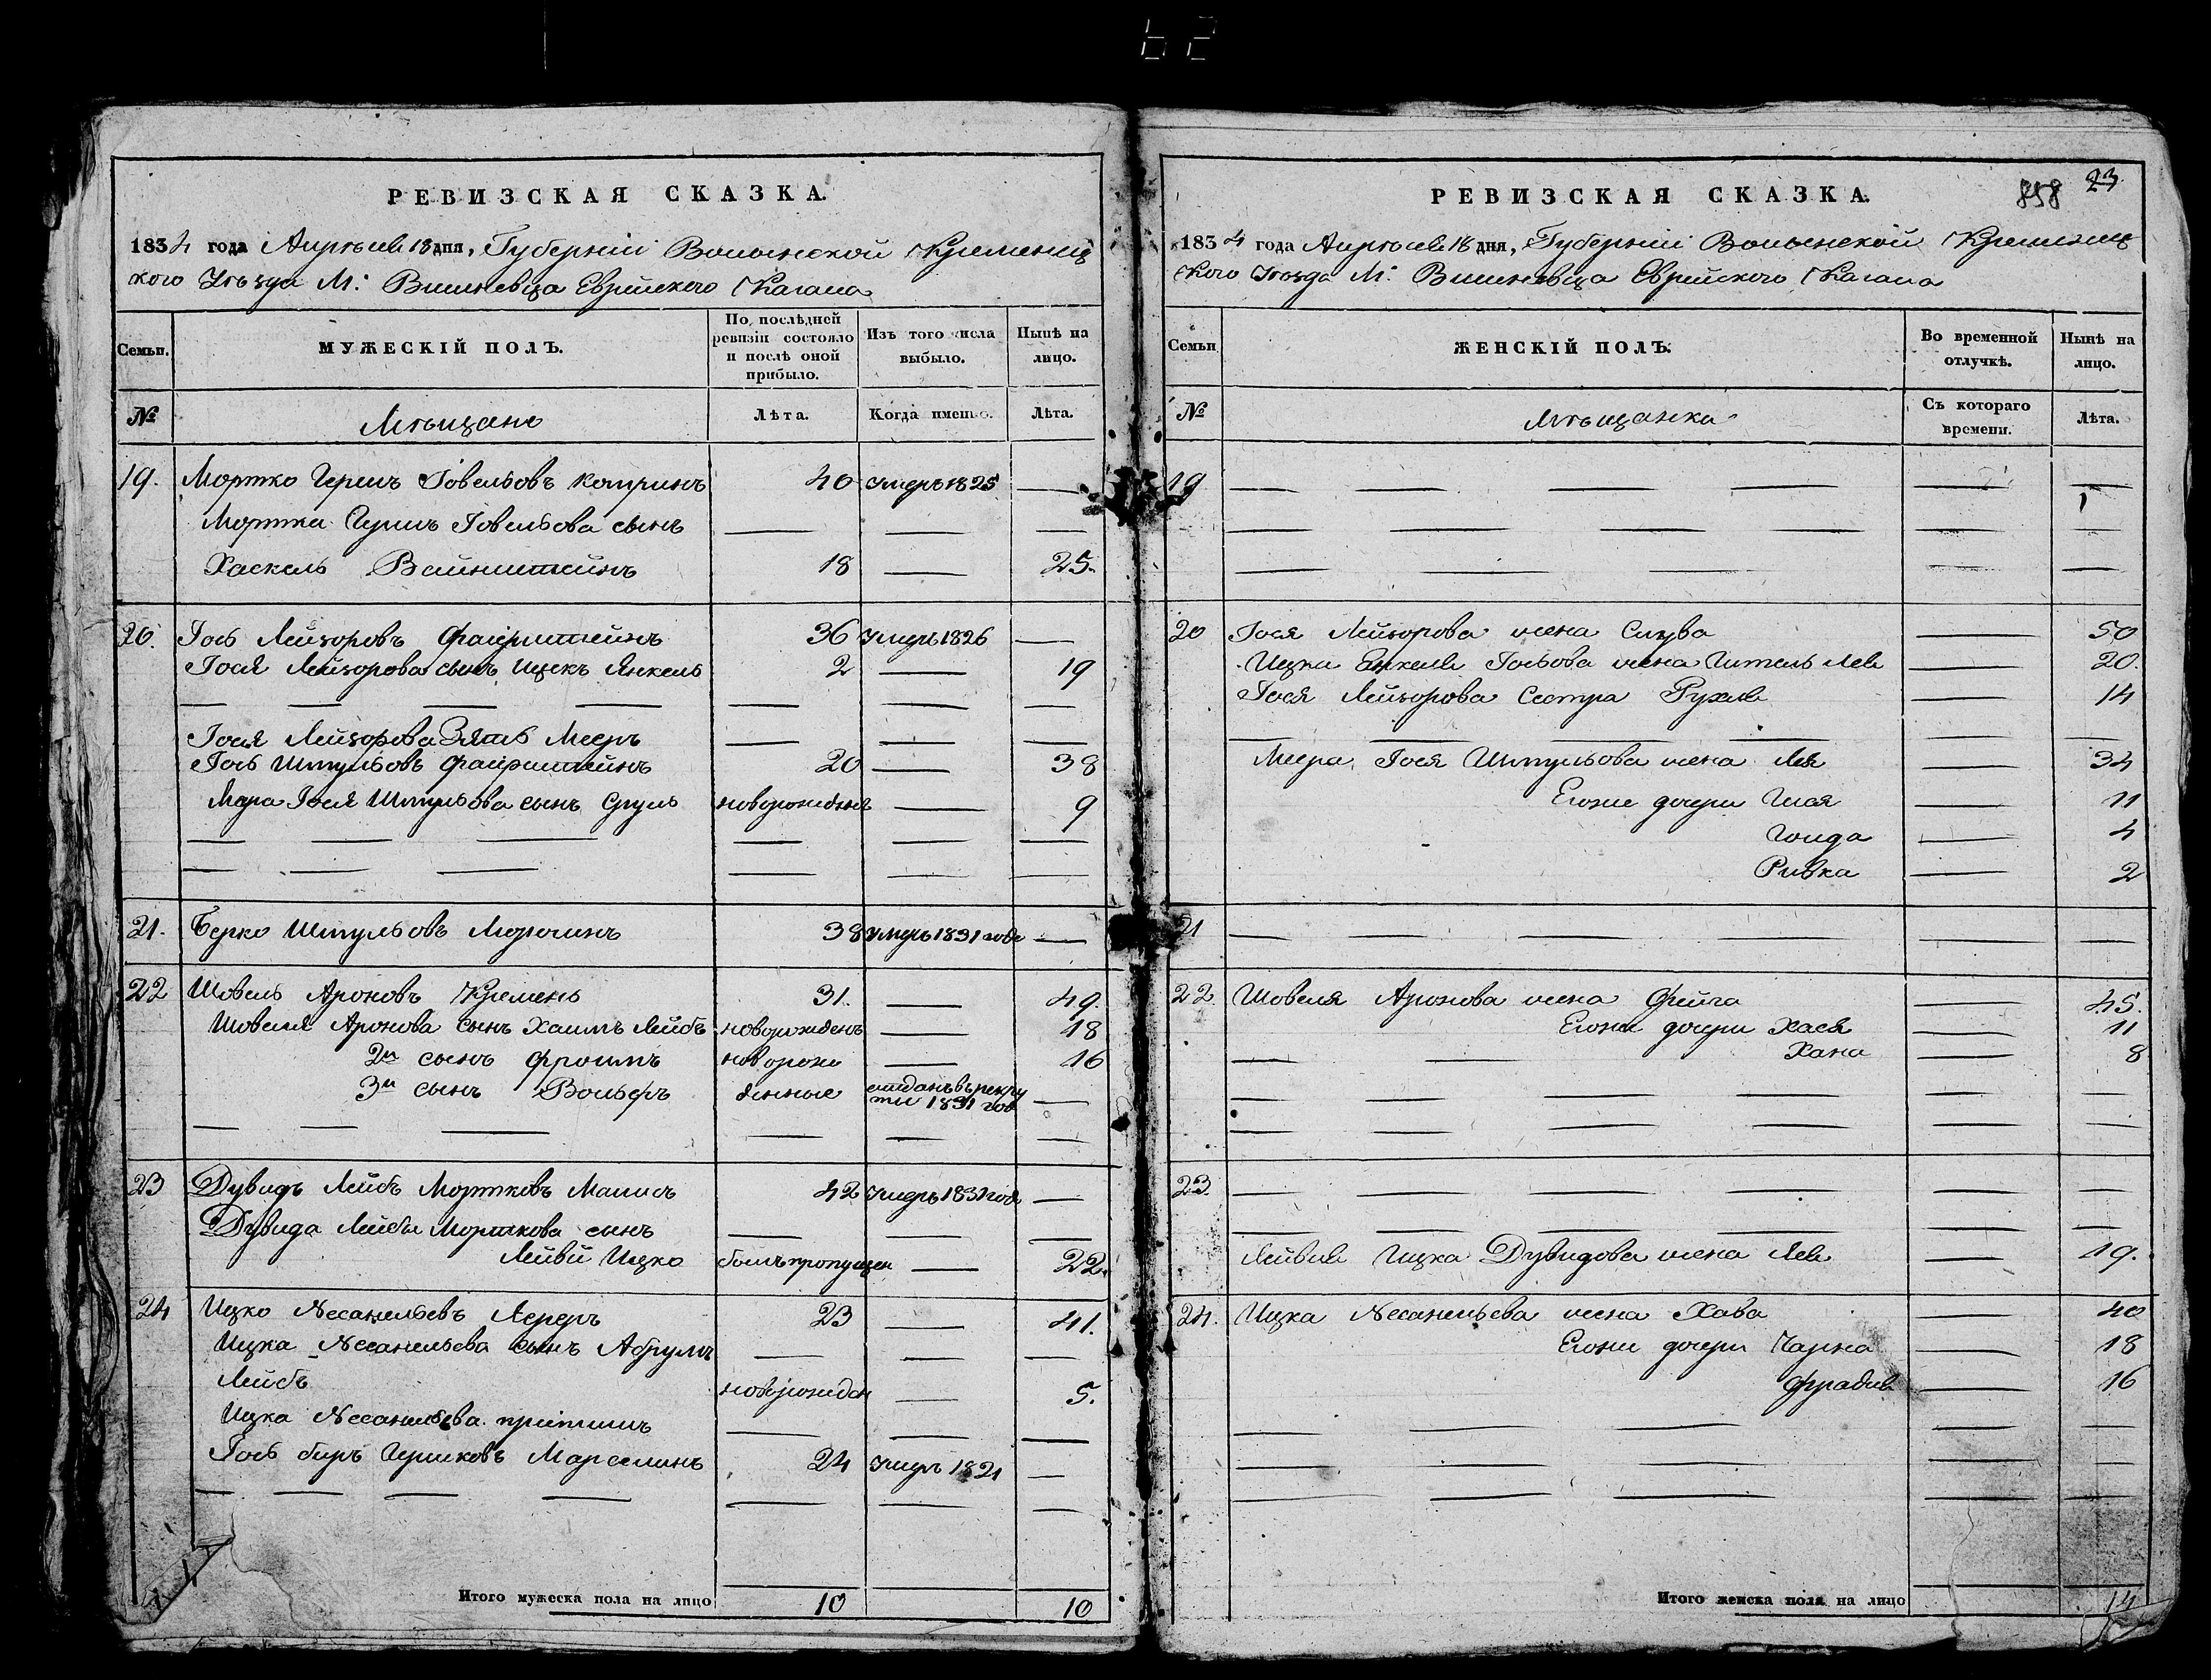 РЕВИЗСКАЯ СКАЗКА.
1834 года Апреля 18 дня, Губерніи Волынской Кременец
кого Уезда М: Вишневца Еврейского Кагала
Семьи.
МУЖЕСКІЙ ПОЛЪ.
По послѣдней ревизіи состояло и послѣ оной прибыло.
Изъ того числа выбыло.
Нынѣ на лицо.
№
Мѣщане
Лѣта.
Когда именно.
Лѣта.
19. Мортко Герш Іовельовъ 40 Умеръ 1825 —
Мортка Герша Іовельова сынъ — — —
Хаскель Вайнштейнъ 18 — 25.
20. Іось Лейзоровъ Файрштейнъ 36 Умеръ 1826 —
Іося Лейзорова сынъ Ицекъ Янкель 2 — 19
— — — — — — —
Іося Лейзорова Зять Меер — — —
Іось Шмульовъ Файрштейнъ 20 — 38
Мера Іося Шмульова сынъ Сруль новорожденъ — 9
— — — — — —
— — — — — —
21. Берко Шмульовъ 38 Умеръ 1831 года —
22 Шовель Ароновъ Кремень 31. — 49.
Шовеля Аронова сынъ Хаимъ Лейбъ новорожденъ — 18
2й сынъ Фроимъ новорож — 16
3й сынъ Вольфъ денные отданъ въ рекру
ты 1831 год —
— — — — — —
23 Дувидъ Лейбъ Мортковъ 42 Умеръ 1831 года —
Дувида Лейбы Морткова сынъ — — —
Лейви Ицко былъ пропущен — 22.
24 Ицко Несанельевъ Лерер 23 — 41.
Ицка Несанельева сынъ Абрумъ — — —
Лейбъ новорожден — 5.
Ицка Несанельева — — —
Іось Бер Гершковъ 24 Умеръ 1821 —
— — — — — — —
Итого мужеска пола на лицо 10 10
РЕВИЗСКАЯ СКАЗКА.
858 23
1834 года Апреля 18 дня, Губерніи Волынской Кременец
кого Уезда М: Вишневца Еврейского Кагала
Семьи
ЖЕНСКІЙ ПОЛЪ.
Во временной отлучкѣ.
Нынѣ на лицо.
№
Мѣщанки
Съ котораго времени.
Лѣта.
19 — — — — — —
— — — — — —
— — — — —
20 Іося Лейзорова жена — 50
Ицки Енкеля Іосьова жена — 20.
Іося Лейзорова Сестра Рухля — 14
— — — — — —
Мера Іося Шмульова жена Лея — 34
Егоже дочери — 11
Голда — 4
Ривка 2
21 — — — — — —
22. Шовеля Аронова жена Фейга — 45.
Егоже дочери Хася — 11
— — Хана — 8
— — — — — —
— — — — — —
23. — — — — — —
— — — — — —
Лейвія Ицка Дувидова жена Лея — 19.
24. Ицка Несанельева жена Хава 40
Егоже дочери Чарна — 18
Фрадля — 16
— — — — —
— — — — —
— — — — —
Итого женска пола на лицо 14